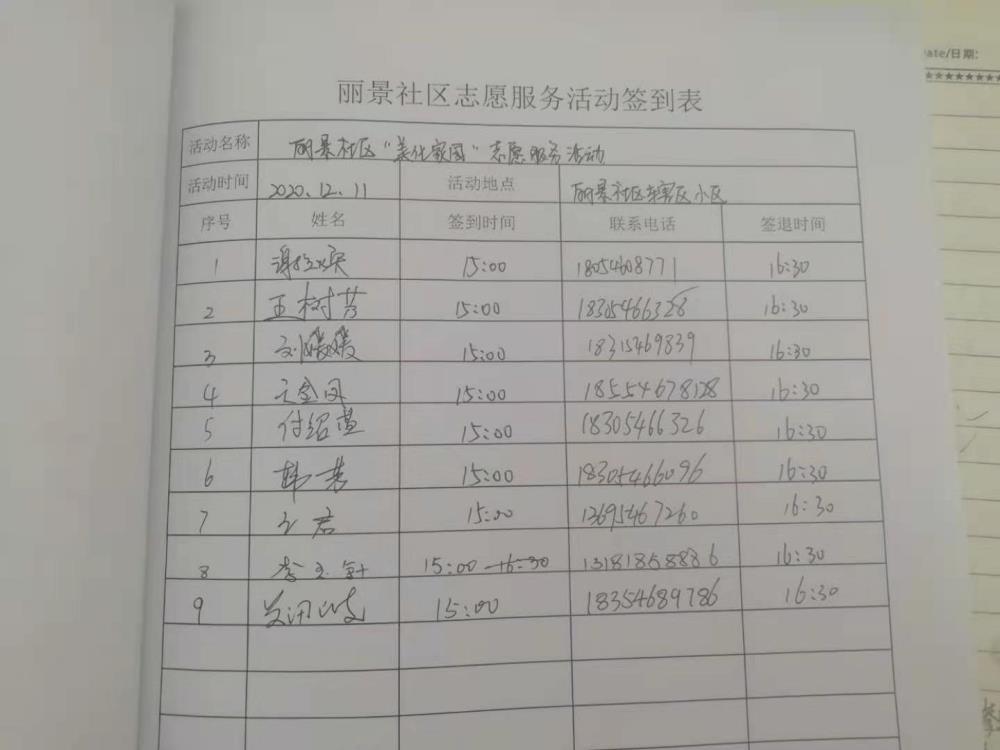 Date/日期:
★★★★★★★★
丽景社区志愿服务活动签到表
活动名称 丽景社区“美化家园”志愿服务活动
活动时间 2020.12.11 活动地点 丽景社区辖区小区
序号 姓名 签到时间 联系电话 签退时间
1 15:00 18054608771 16:30
2 王树芳 15:00 18305466328 16:30
3 刘媛媛 15:00 18315469839 16:30
4 王金凤 15:00 18554678128 16:30
5 付绍莲 15:00 18305466326 16:30
6 韩 15:00 18305466096 16:30
7 王君 15:00 13695467260 16:30
8 李玉 15:00 16:30 13181858886 16:30
9 15:00 18354689786 16:30